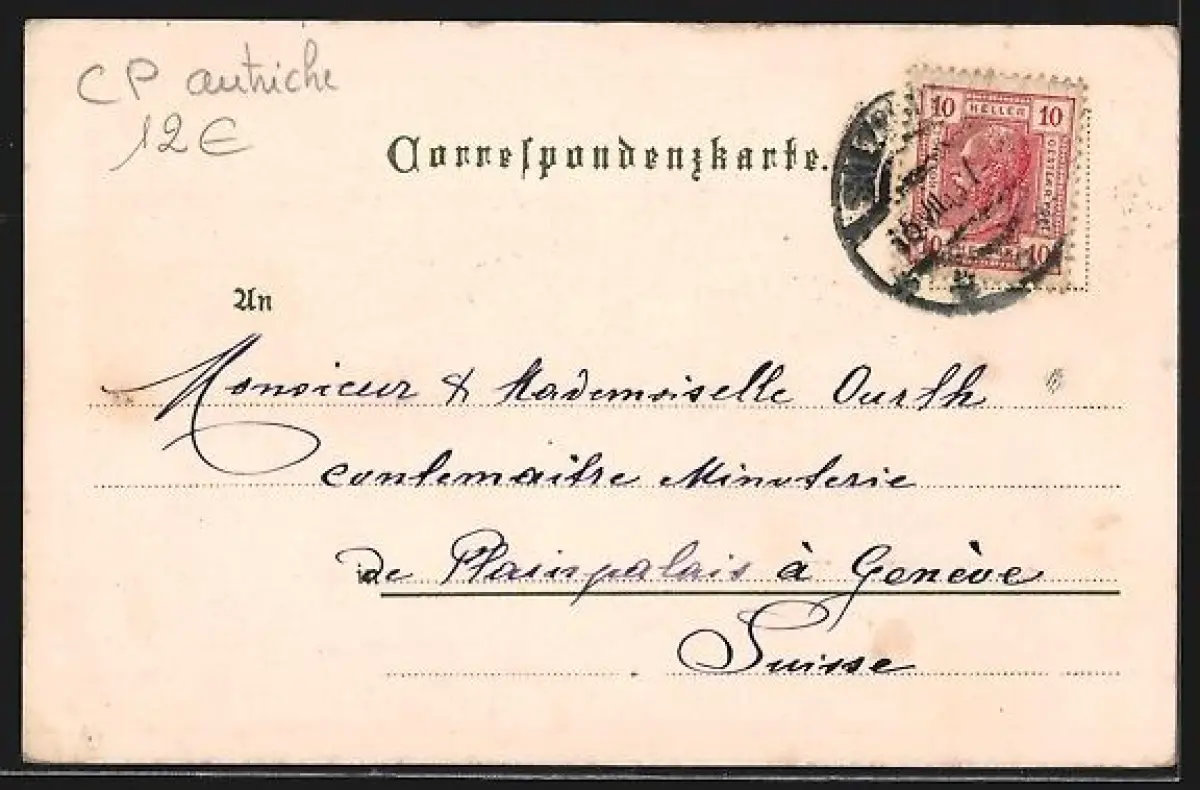 CP autriche
12€
Correspondenzkarte.
10 HELLER 10
10 10
An
Monsieur & Mademoiselle Ourth
contemaitre Minoterie
de Plainpalais à Genève
Suisse